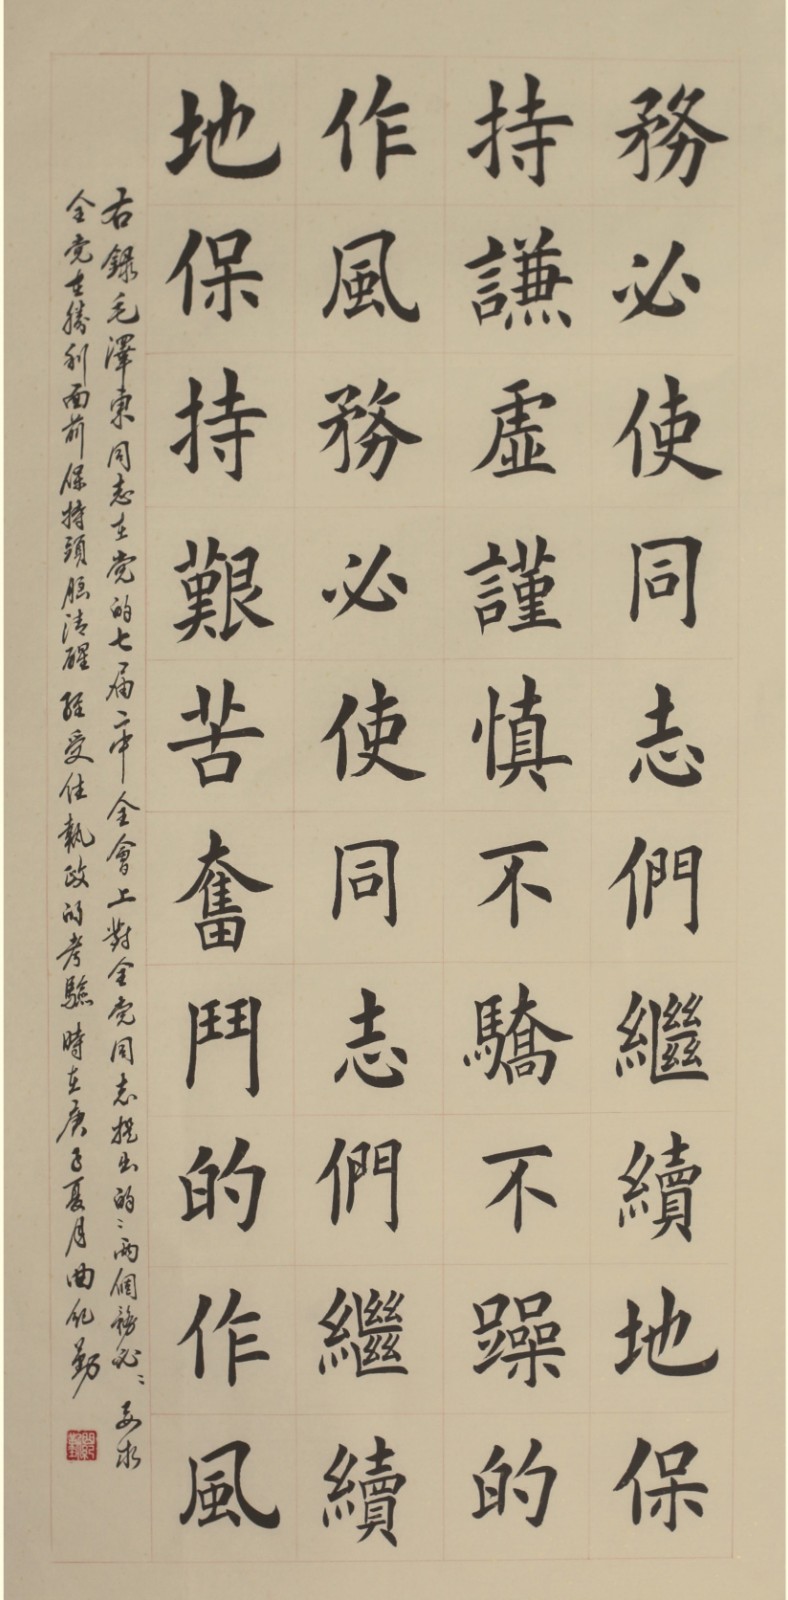 務必使同志們繼續地保
持謙虛謹慎不驕不躁的
作風務必使同志們繼續
地保持艱苦奮鬥的作風
右錄毛澤東同志在党的七届二中全會上對全党同志提出的"兩個務必"要求
全党在勝利面前保持頭腦清醒經受住執政的考驗時在庚子夏月曲紀勤